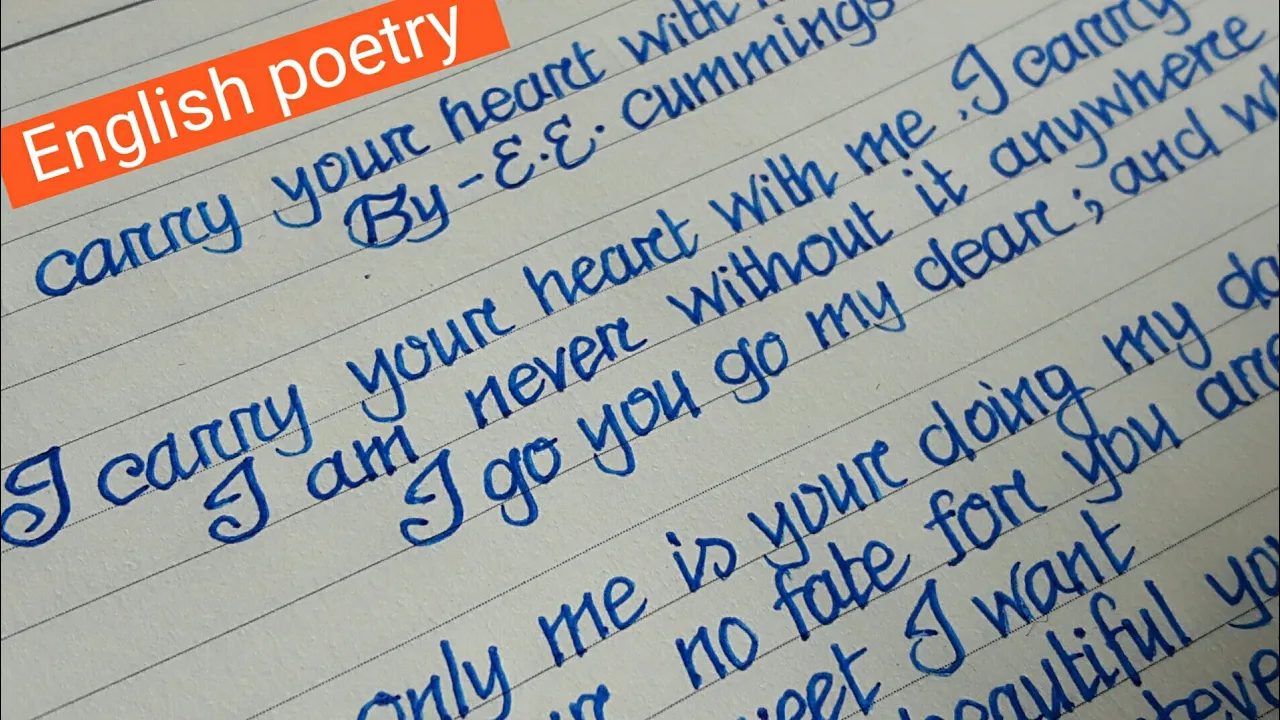 English poetry
carry your heart with
By - E.E. cummings
I carry your heart with me. I carry
I am never without it anywhere
I go you go my dear; and
only me is your doing my
no fate for you are
I want
beautiful